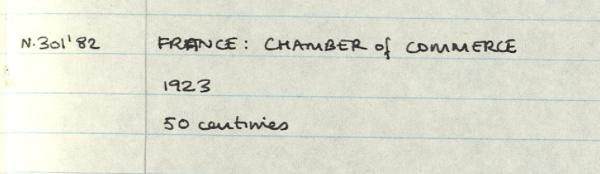 N.301'82 FRANCE: CHAMBER of COMMERCE
1923
50 centimes